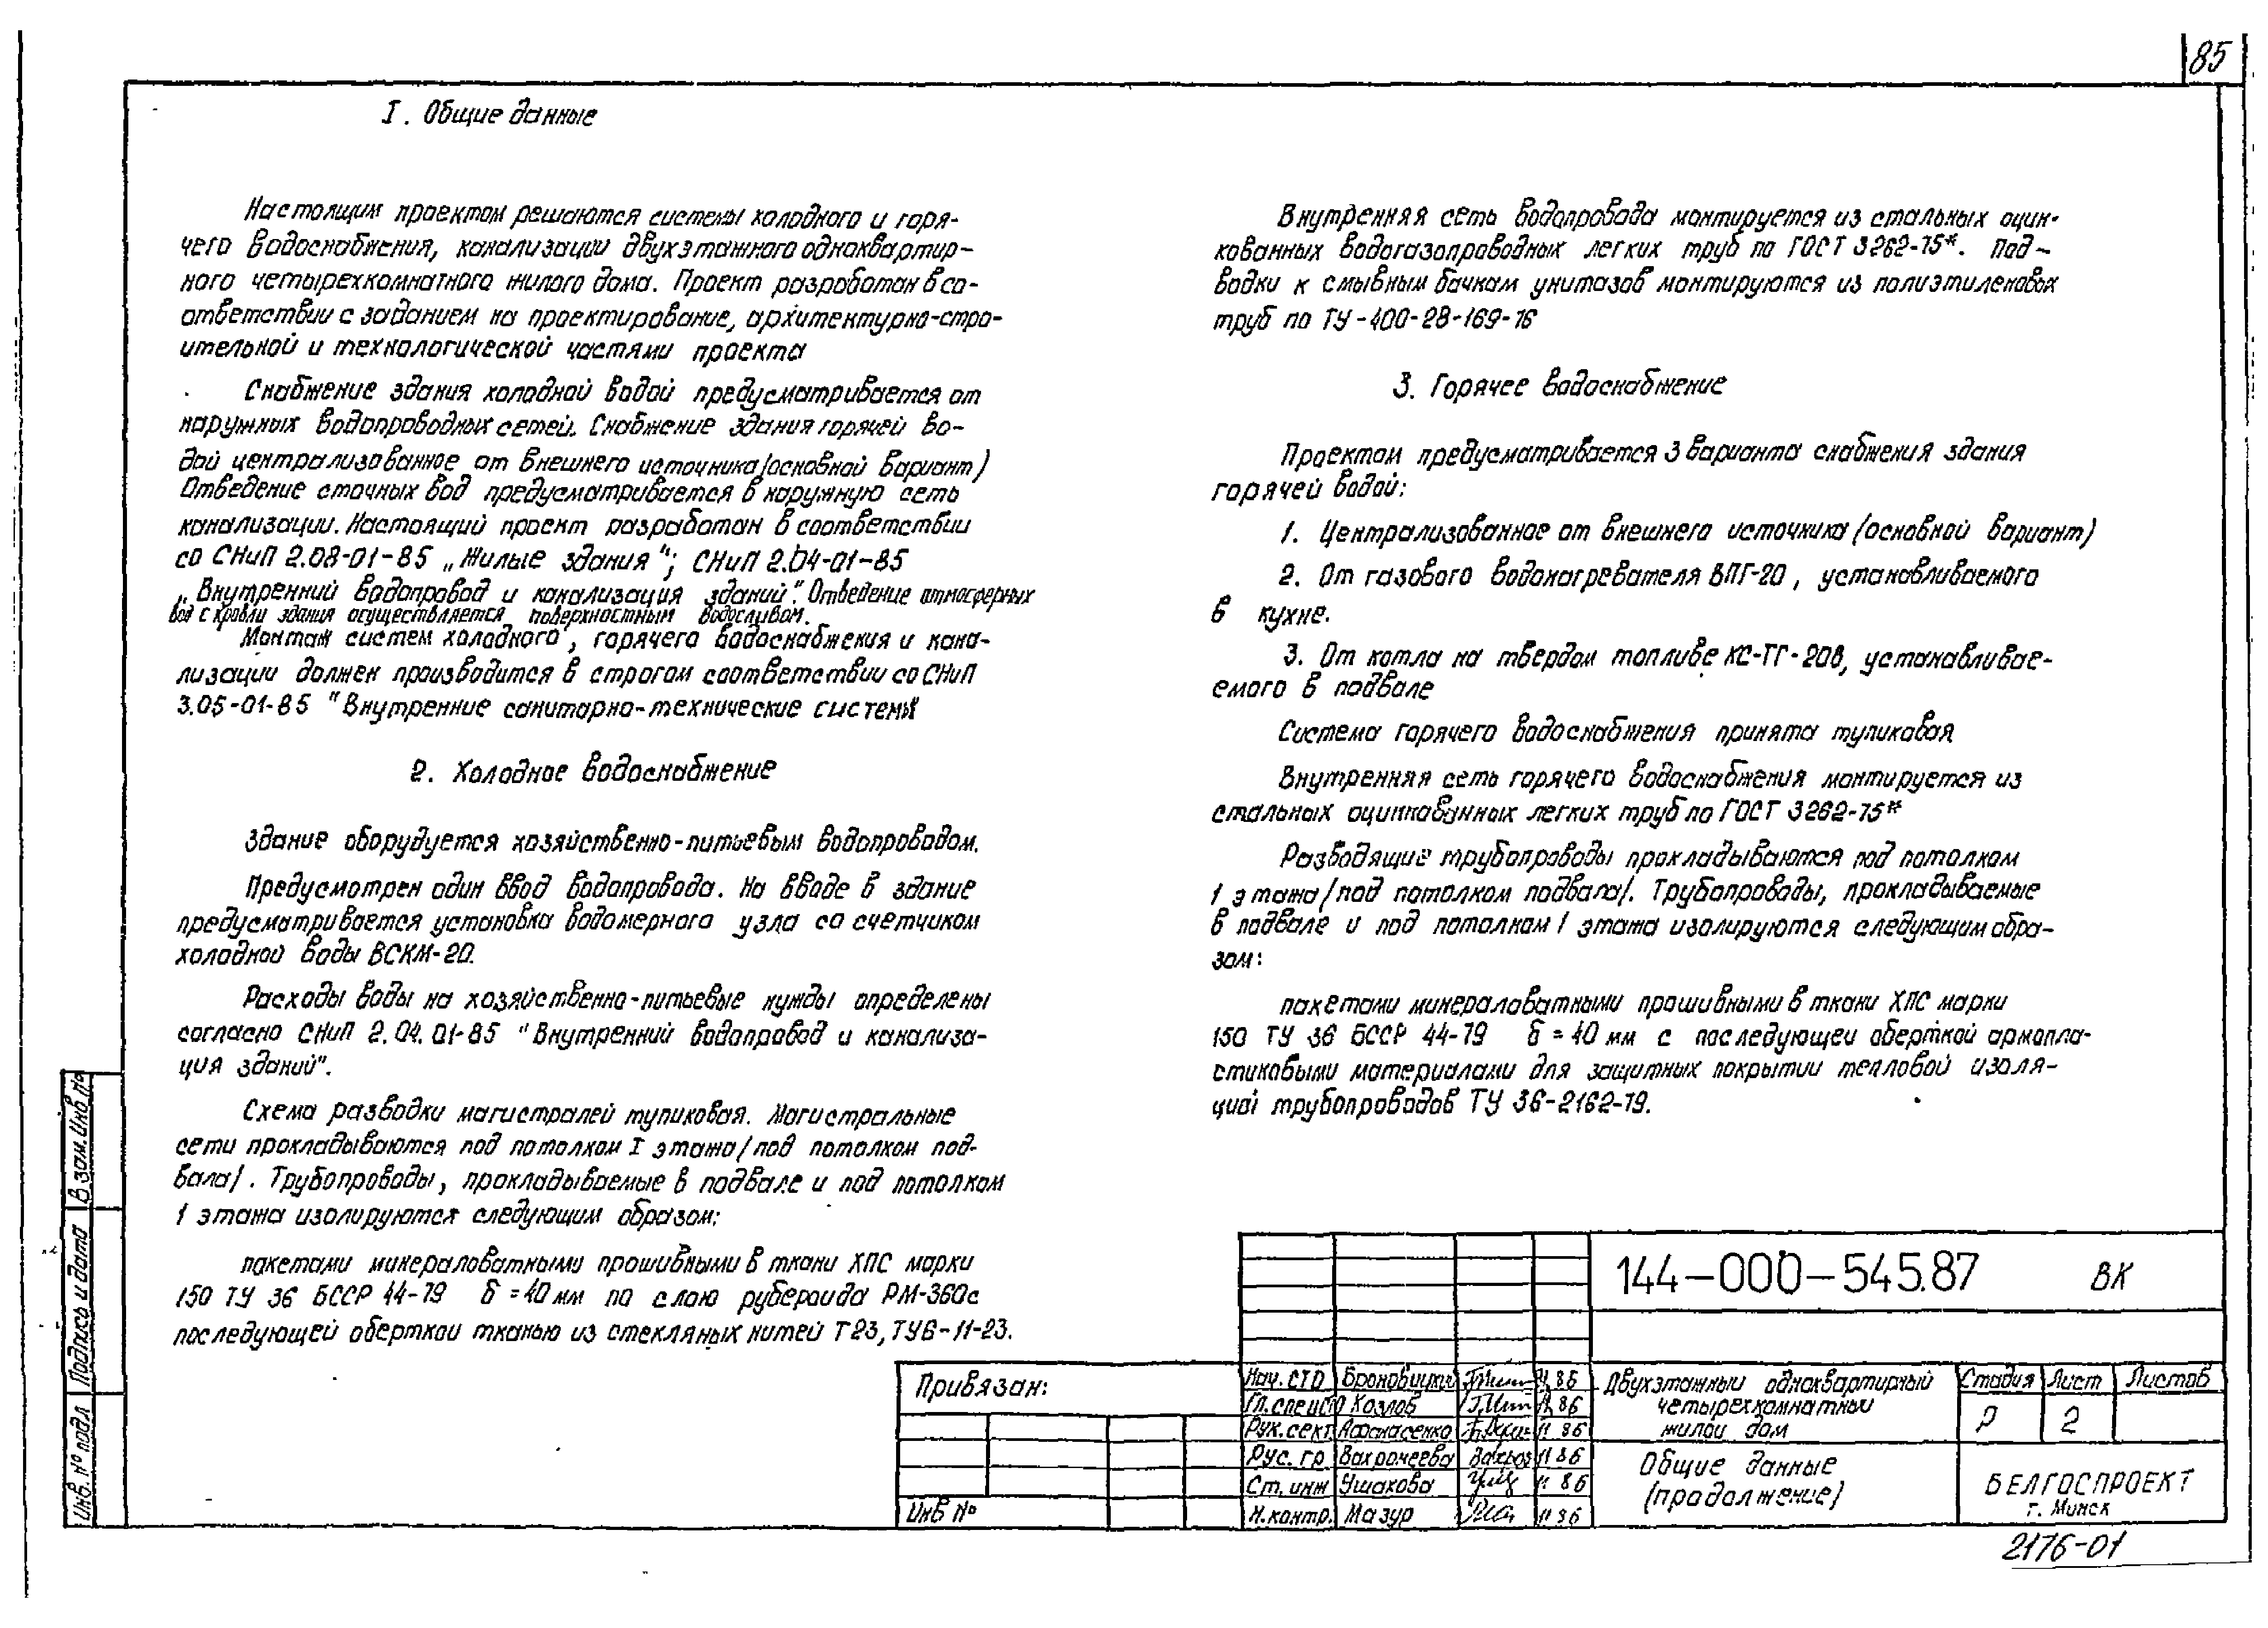 85
I. Общие данные
Настоящим проектом решаются системы холодного и горя-
чего водоснабжения, канализации двухэтажного одноквартир-
ного четырехкомнатного жилого дома. Проект разработан в со-
ответствии с заданием на проектирование, архитектурно-стро-
ительной и технологической частями проекта
Снабжение здания холодной водой предусматривается от
наружных водопроводных сетей. Снабжение здания горячей во-
дой централизованное от внешнего источника/основной вариант)
Отведение сточных вод предусматривается в наружную сеть
канализации. Настоящий проект разработан в соответствии
со СНиП 2.08-01-85 „Жилые здания"; СНиП 2.04-01-85
„Внутренний водопровод и канализация зданий". Отведение атмосферных
вод с кровли здания осуществляется поверхностным водосливом.
Монтаж систем холодного, горячего водоснабжения и кана-
лизации должен производится в строгом соответствии со СНиП
3.05-01-85 "Внутренние санитарно-технические системы"
2. Холодное водоснабжение
Здание оборудуется хозяйственно-питьевым водопроводом.
Предусмотрен один ввод водопровода. На вводе в здание
предусматривается установка водомерного узла со счетчиком
холодной воды ВСКМ-20.
Расходы воды на хозяйственно-питьевые нужды определены
согласно СНиП 2.04.01-85 "Внутренний водопровод и канализа-
ция зданий".
Схема разводки магистралей тупиковая. Магистральные
сети прокладываются под потолком I этажа/под потолком под-
вала/. Трубопроводы, прокладываемые в подвале и под потолком
1 этажа изолируются следующим образом:
пакетами минераловатными прошивными в ткани ХПС марки
150 ТУ 36 БССР 44-79 δ=40 мм по слою рубероида РМ-360с
последующей оберткой тканью из стекляных нитей Т23, ТУ6-11-23.
Внутренняя сеть водопровода монтируется из стальных оцин-
кованных водогазопроводных легких труб по ГОСТ 3262-75*. Под-
водки к смывным бачкам унитазов монтируются из полиэтиленовых
труб по ТУ-400-28-169-76
3. Горячее водоснабжение
Проектом предусматривается 3 варианта снабжения здания
горячей водой:
1. Централизованное от внешнего источника (основной вариант)
2. От газового водонагревателя ВПГ-20, устанавливаемого
в кухне.
3. От котла на твердом топливе КС-ТГ-20в, устанавливае-
емого в подвале
Система горячего водоснабжения принята тупиковая
Внутренняя сеть горячего водоснабжения монтируется из
стальных оцинкованных легких труб по ГОСТ 3262-75*
Разводящие трубопроводы прокладываются под потолком
1 этажа/под потолком подвала/. Трубопроводы, прокладываемые
в подвале и под потолком 1 этажа изолируются следующим обра-
зом:
пакетами минераловатными прошивными в ткани ХПС марки
150 ТУ 36 БССР 44-79 δ=40 мм с последующей оберткой армопла-
стиковыми материалами для защитных покрытий тепловой изоля-
ции трубопроводов ТУ 36-2162-79.
Взам. Инв. №
Подпись и дата
Инв. № подл
144-000-545.87 ВК
Привязан:
Инв №
Нач. СТО Броновицкий 11.86
Гл. спец СТО Козлов 11.86
Рук. сект Афанасенко 11 86
Рус. гр Вахромеева 11 86
Ст. инж Ушакова 11 86
Н. контр. Мазур 11 86
Двухэтажный одноквартирный
четырехкомнатный
жилой дом
Стадия Лист Листов
Р 2
Общие данные
(продолжение)
БЕЛГОСПРОЕКТ
г. Минск
2176-01